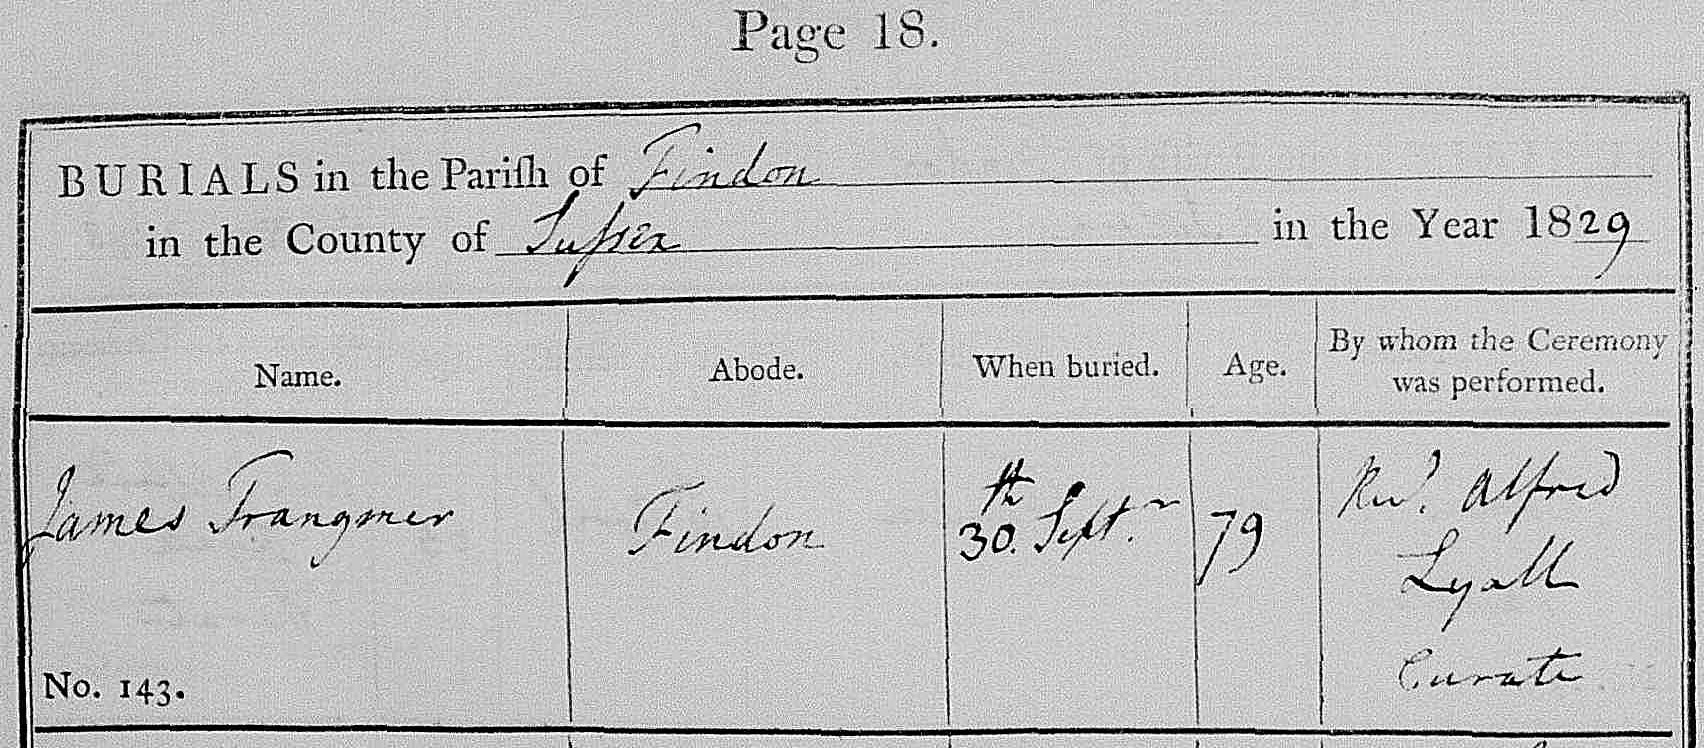 Page 18.
BURIALS in the Pariſh of Findon
in the County of Suſsex in the Year 1829
Name. Abode. When buried. Age. By whom the Ceremony was performed.
James Trangmer Findon 30.th Septr. 79 Revd. Alfred
Lyall
Curate
No. 143.